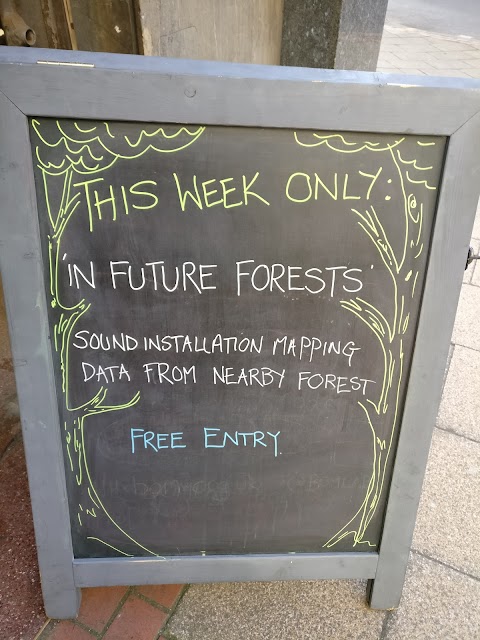 THIS WEEK ONLY:
'IN FUTURE FORESTS'
SOUND INSTALLATION MAPPING
DATA FROM NEARBY FOREST
FREE ENTRY